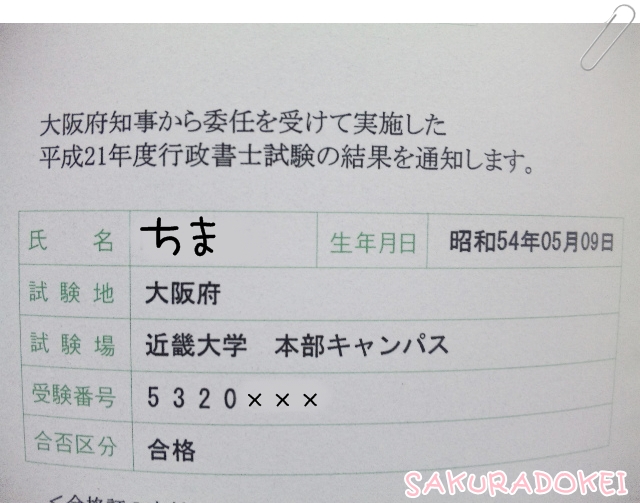 大阪府知事から委任を受けて実施した
平成21年度行政書士試験の結果を通知します。
氏 名 ちま 生年月日 昭和54年05月09日
試験地 大阪府
試験場 近畿大学 本部キャンパス
受験番号 5320×××
合否区分 合格
SAKURADOKEI